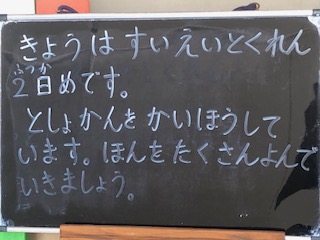 きょうはすいえいとくれん
ふつか
2日めです。
としょかんをかいほうして
います。ほんをたくさんよんで
いきましょう。